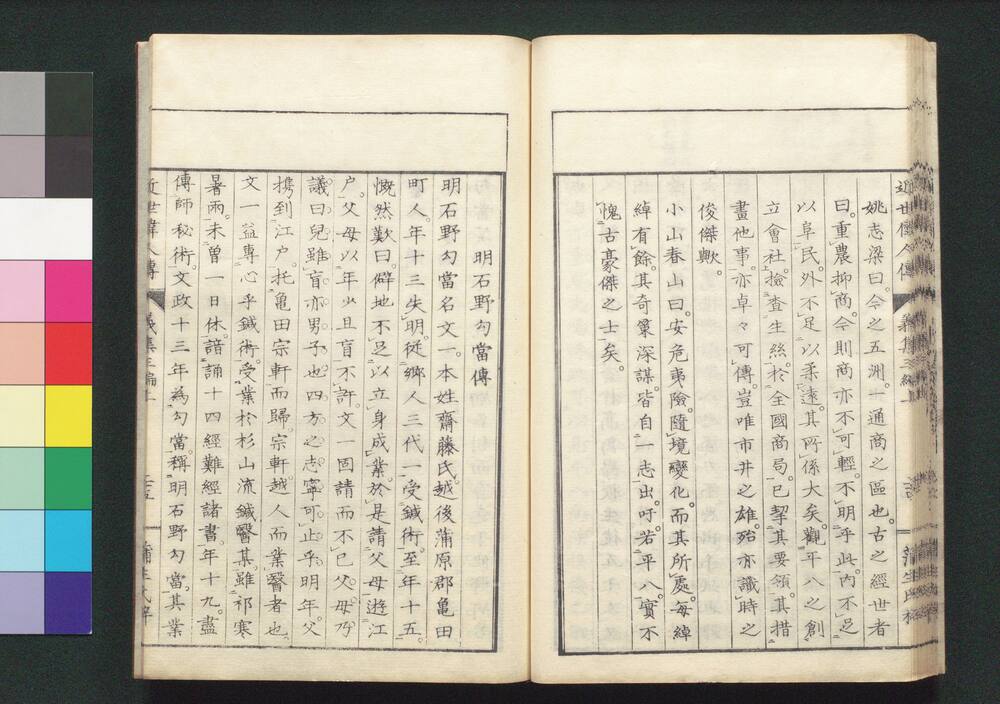 近世偉人傳 義集三編上 蒲生氏梓
姚志梁曰。今之五洲。一通商之區也。古之經世者
曰。重農抑商。今則商亦不可輕。不明乎此。內不足
以阜民。外不足以柔遠。其所係大矣。觀平八之創
立會社。撿査生絲。於全國商局。已挈其要領。其措
畫他事。亦卓々可傳。豈唯市井之雄。殆亦識時之
俊傑歟。
小山春山曰。安危夷險。隨境變化。而其所處。每綽
綽有餘。其奇策深謀。皆自一志出。吁。若平八。實不
愧古豪傑之士矣。
明石野勾當傳
明石野勾當名文一。本姓齋藤氏。越後蒲原郡亀田
町人。年十三失明。從鄉人三代一受鍼術。至年十五。
慨然歎曰。僻地不足以立身成業。於是請父母遊江
户。父母以年少且盲不許。文一固請而不已。父母乃
議曰。兒雖盲亦男子也。四方之志。寧可止乎。明年。父
携到江户。托亀田宗軒而歸。宗軒越人而業醫者也。
文一益專心乎鍼術。受業於杉山流鍼醫某。雖祁寒
暑雨。未曾一日休。諳誦十四經難經諸書。年十九。盡
傳師秘術。文政十三年為勾當。稱明石野勾當。其業
近世偉人傳 義集三編上 蒲生氏梓